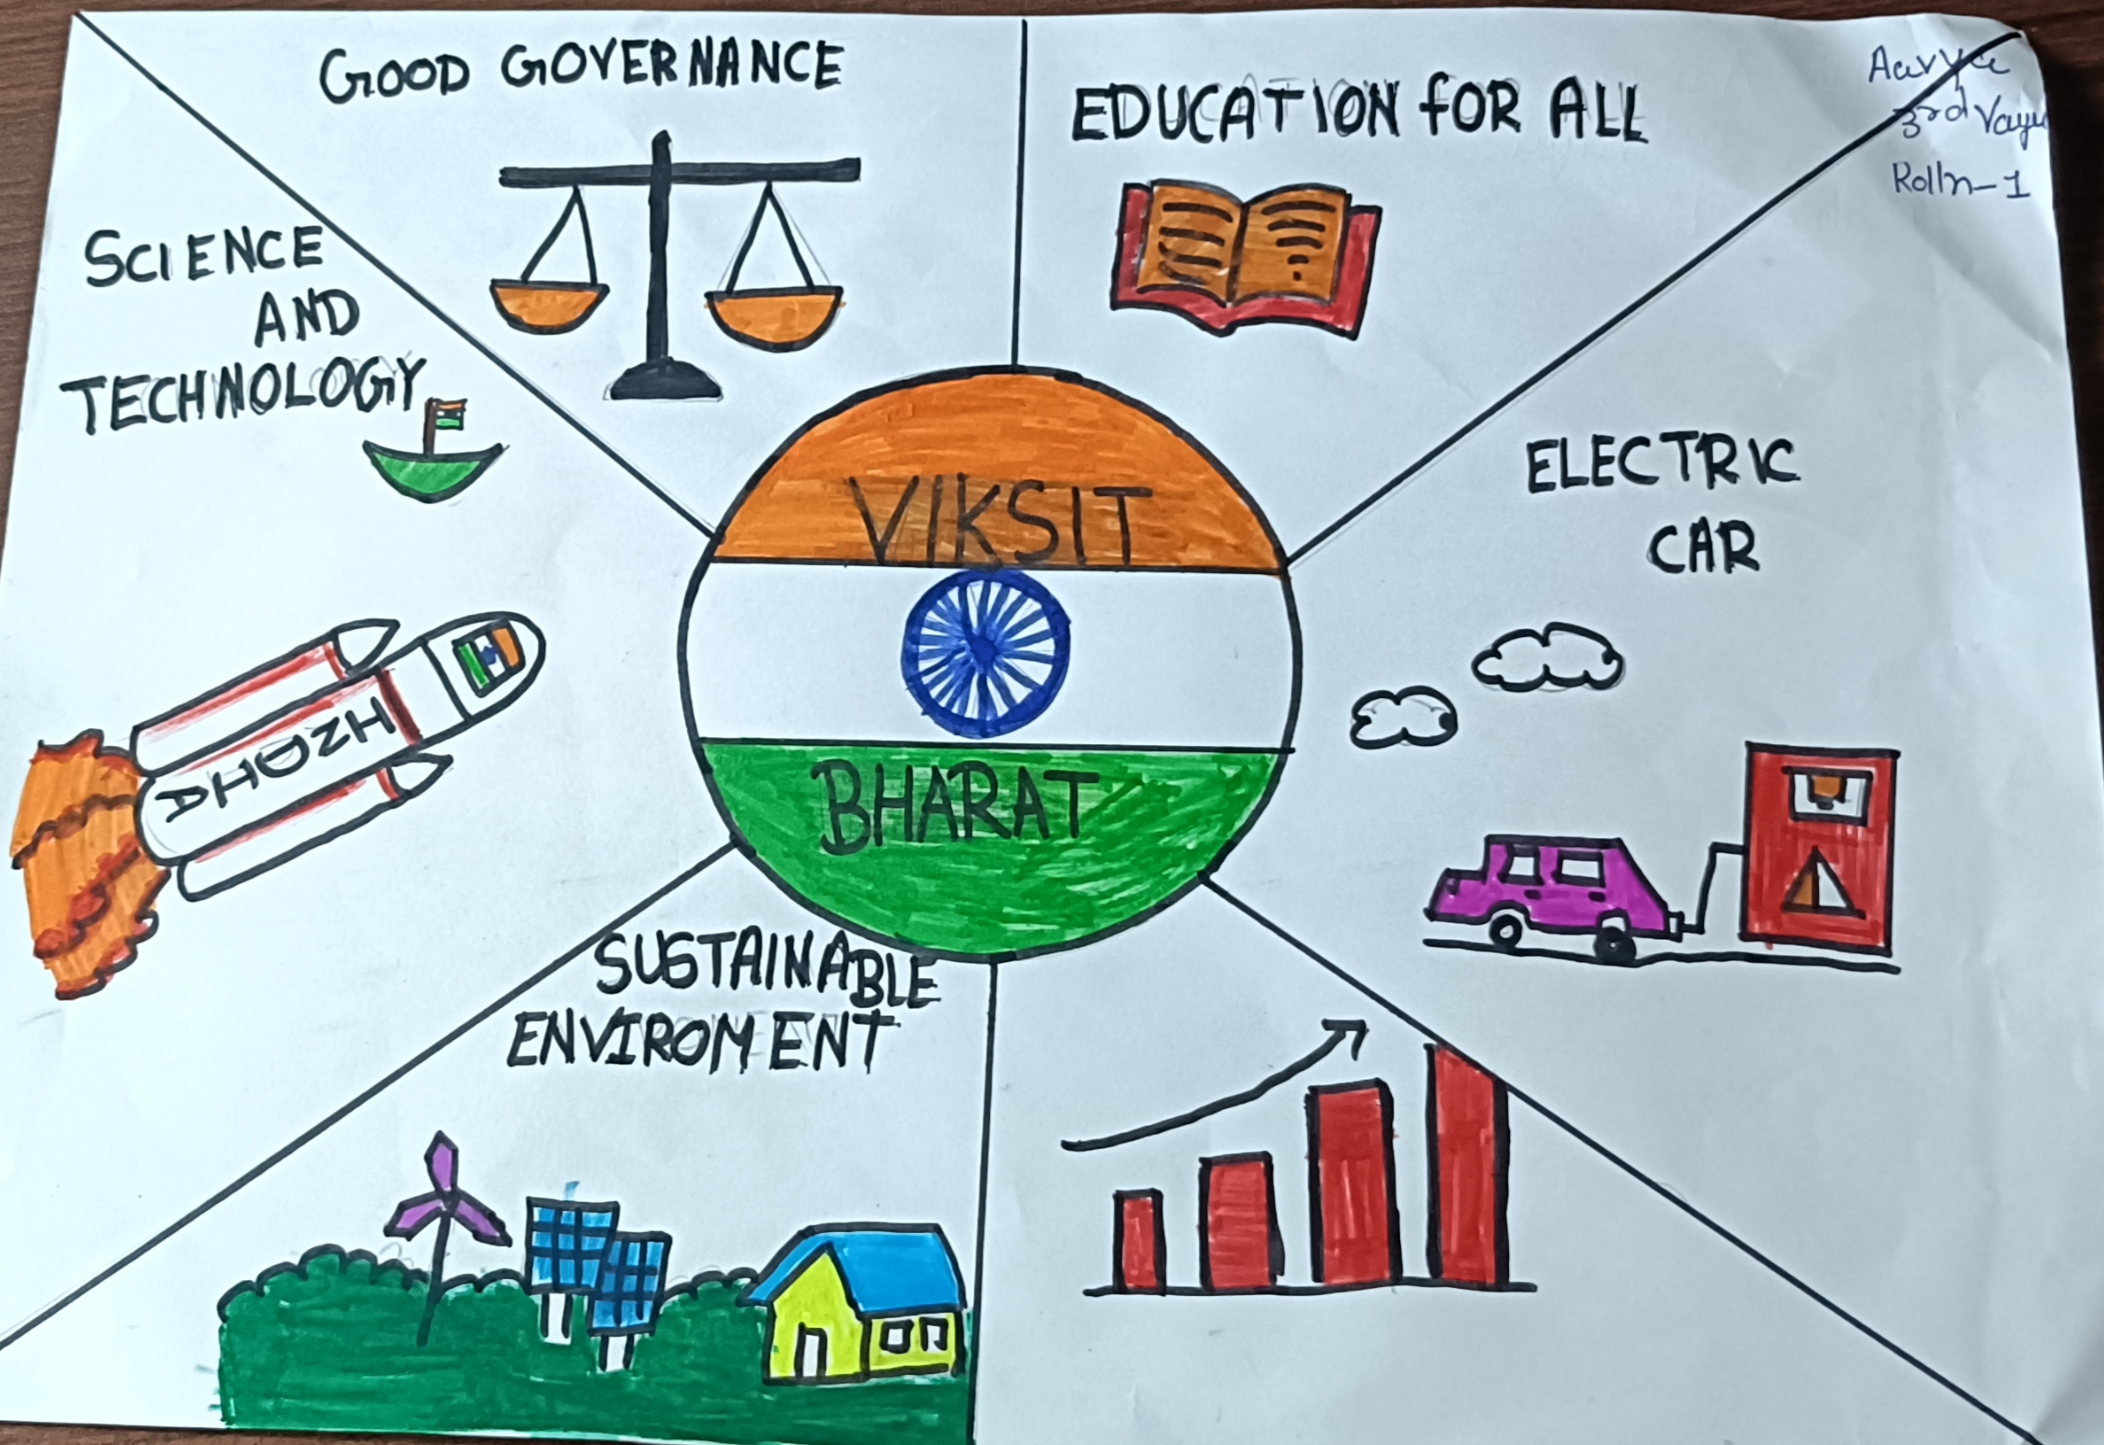 GOOD GOVERNANCE
EDUCATION FOR ALL
Aavya
3rd Vayu
Rolln-1
SCIENCE
AND
TECHNOLOGY
ELECTRIC
CAR
VIKSIT
BHARAT
SUSTAINABLE
ENVIROMENT